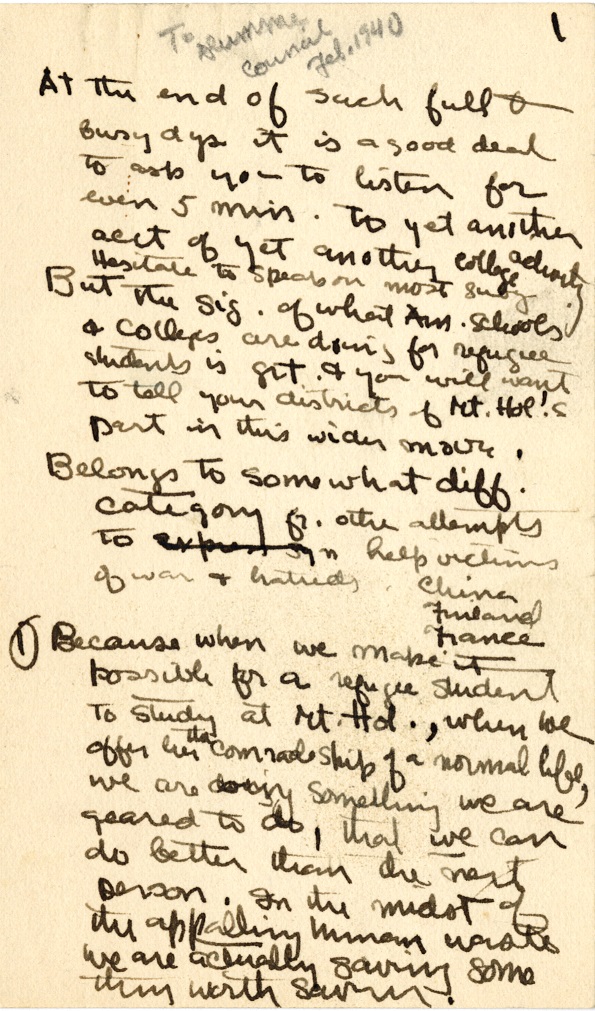 To Alumnae
Council
Feb. 1940
1
At the end of such full &
busy dys it is a good deal
to ask you to listen for
even 5 mins. to yet another
acct of yet another college activity
Hesitate to speak on most
But the sig. of what Am. Schools
& Colleges are doing for refugee
students is grt. & you will want
to tell your districts of Mt. Hol's
part in this wider move.
Belongs to somewhat diff.
category fr. other attempts
to help victims
of war & hatreds. China
Finland
France
① Because when we make it
possible for a refugee student
to study at Mt. Hol., when we
offer her the comradeship of a normal life,
we are doing something we are
geared to do, that we can
do better than the next
person. In the midst of
the appalling human waste
we are actually saving some
thing worth saving.